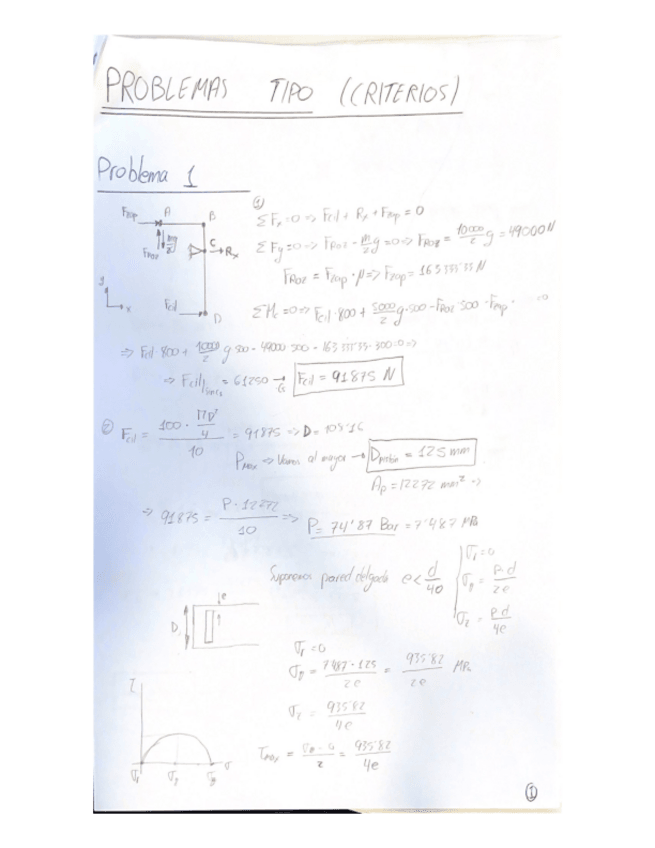 PROBLEMAS TIPO (CRITERIOS)
Problema 1
Fzap A B
Froz mg/2 C Rx
y x Fcil D
①
ΣFx=0 => Fcil + Rx + Fzap = 0
ΣFy=0 => Froz - m/2 g = 0 => Froz = 10000/2 g = 49000 N
Froz = Fzap · μ => Fzap = 163333'33 N
ΣMc=0 => Fcil·800 + 5000/2 g·500 - Froz·500 - Fzap· =0
=> Fcil·800 + 10000/2 g·500 - 49000·500 - 163333'33·300=0 =>
=> Fcil = 61250 → Fcil = 91875 N
② Fcil = (100 · πD²/4)/10 = 91875 => D = 108'16
Pmax => Vamos al mayor → Dpistón = 125 mm
Ap = 12272 mm² =>
=> 91875 = P·12272/10 => P = 74'87 Bar = 7'487 MPa
Suponemos pared delgada e < d/40
σr = 0
σθ = Pd/2e
σz = Pd/4e
D e
σr = 0
σθ = 7'487·125/2e = 935'82/2e MPa
σz = 935'82/4e
τmax = (σθ - 0)/2 = 935'82/4e
τ
σr σz σθ σ
①